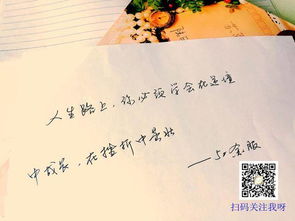 人生路上，你必须学会在逆境
中成长，在挫折中茁壮
扫码关注我呀